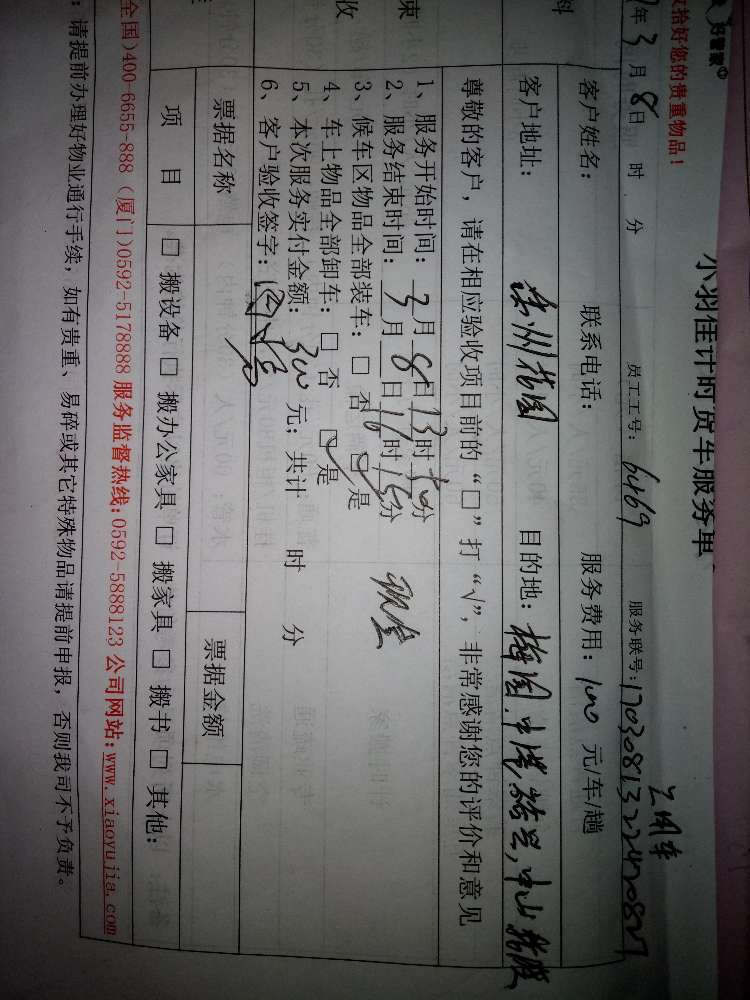 好管家
小羽佳计时货车服务单
拾好您的贵重物品!
年3月8日 时 分 员工工号:6469 服务联号:
客户姓名: 联系电话: 服务费用:100元/车/趟
客户地址: 目的地:
尊敬的客户,请在相应验收项目前的“□”打“√”,非常感谢您的评价和意见
1、服务开始时间:3月8日13时50分
2、服务结束时间:3月8日16时15分
3、候车区物品全部装车:□否 □是 现金
4、车上物品全部卸车:□否 □是
5、本次服务实付金额:300元;共计 时 分
6、客户验收签字:
票据名称 票据金额
项目 □搬设备 □搬办公家具 □搬家具 □搬书 □其他:
全国)400-6655-888(厦门)0592-5178888 服务监督热线:0592-5888123 公司网站:www.xiaoyujia.com
:请提前办理好物业通行手续,如有贵重、易碎或其它特殊物品请提前申报,否则我司不予负责。